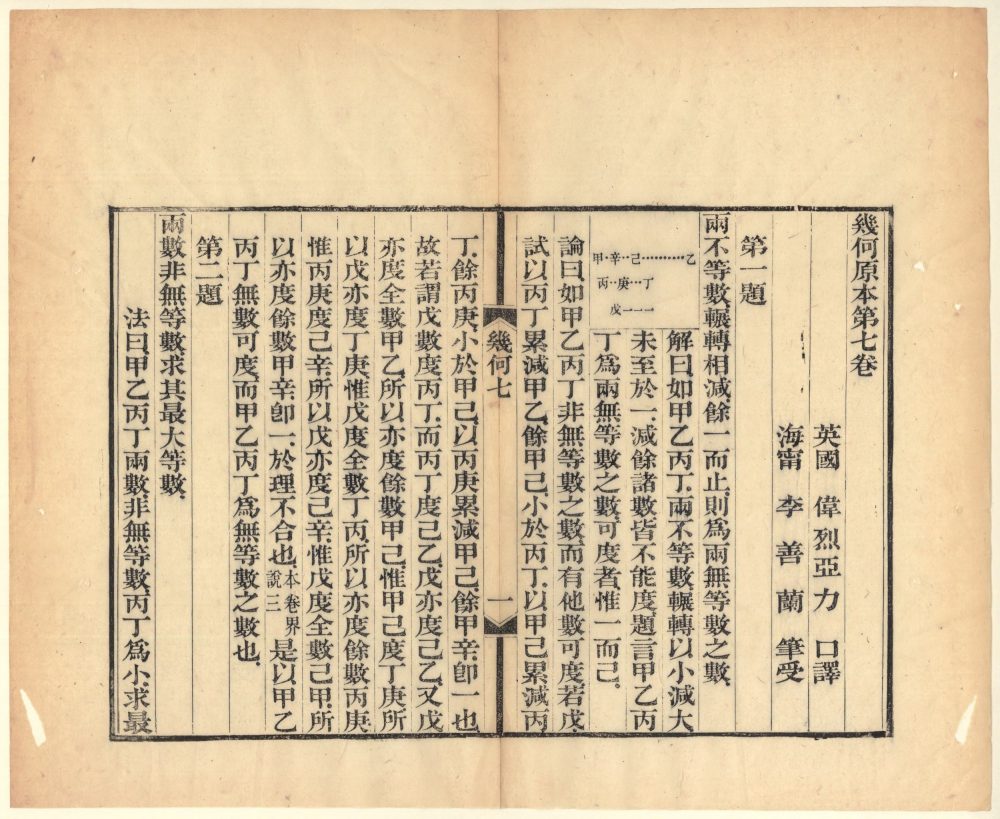 幾何原本第七卷
英國 偉烈亞力 口譯
海甯 李善蘭 筆受
第一題
兩不等數、輾轉相減、餘一而止、則爲兩無等數之數、
甲‥辛‥己…………乙
丙‥庚…丁
戊———
解曰、如甲乙丙丁、兩不等數、輾轉以小減大、
未至於一、減餘諸數皆不能度、題言甲乙丙
丁爲兩無等數之數、可度者惟一而已、
論曰、如甲乙丙丁非無等數之數、而有他數可度、若戊、
試以丙丁累減甲乙、餘甲己、小於丙丁、以甲己累減丙
幾何七
一
丁、餘丙庚、小於甲己、以丙庚累減甲己、餘甲辛、卽一也
故若謂戊數度丙丁、而丙丁度己乙、戊亦度己乙、又戊
亦度全數甲乙、所以亦度餘數甲己、惟甲己度丁庚、所
以戊亦度丁庚、惟戊度全數丁丙、所以亦度餘數丙庚、
惟丙庚度己辛、所以戊亦度己辛、惟戊度全數己甲、所
以亦度餘數甲辛卽一、於理不合也、本卷界說三 是以甲乙
丙丁無數可度、而甲乙丙丁爲無等數之數也、
第二題
兩數非無等數、求其最大等數、
法曰、甲乙丙丁兩數、非無等數、丙丁爲小、求最